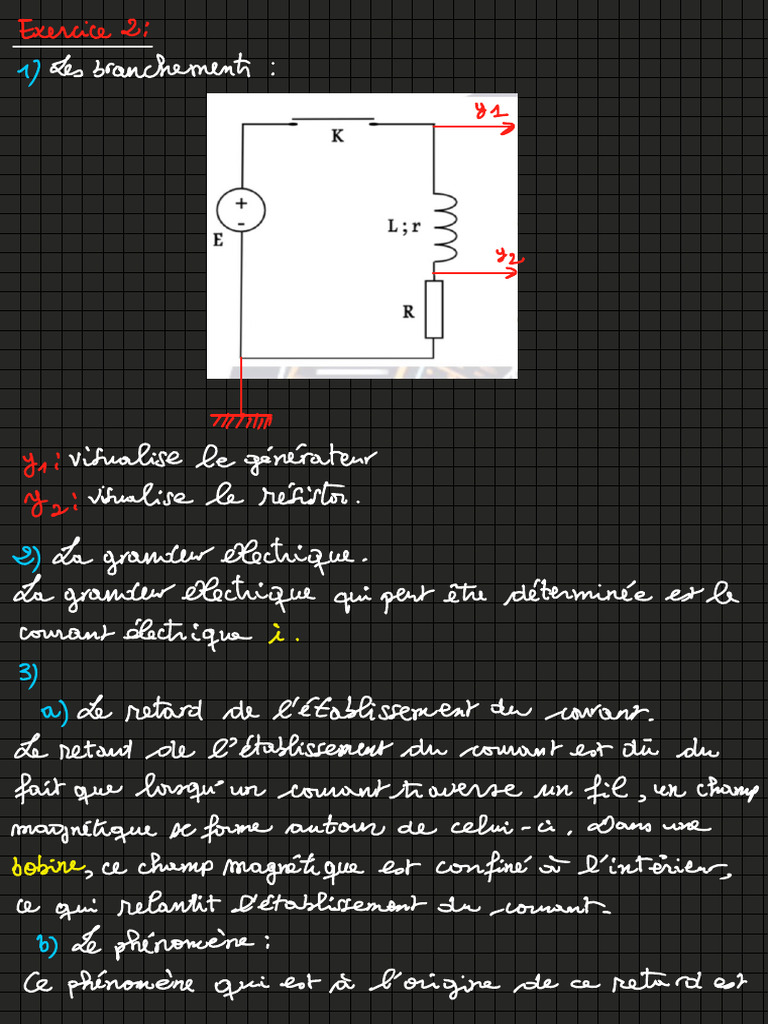 Exercice 2:
1) Les branchements :
y1
K
+
-
E
L ; r
y2
R
y1: visualise le générateur
y2: visualise le résistor.
2) La grandeur electrique.
La grandeur electrique qui peut être déterminée est le
courant électrique i.
3)
a) Le retard de l'établissement du courant.
Le retard de l'établissement du courant est dû du
fait que lorsqu'un courant traverse un fil, un champ
magnétique se forme autour de celui-ci. Dans une
bobine, ce champ magnétique est confiné à l'intérieur,
ce qui relantit l'établissement du courant.
b) Le phénomène :
Ce phénomène qui est à l'origine de ce retard est